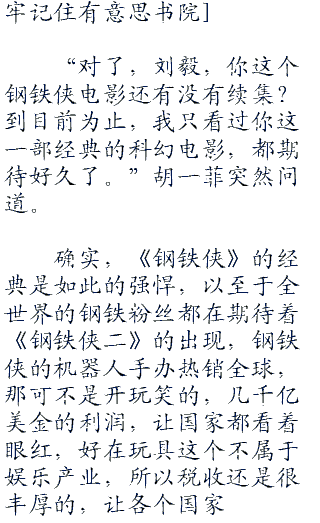 牢记住有意思书院]
“对了，刘毅，你这个
钢铁侠电影还有没有续集？
到目前为止，我只看过你这
一部经典的科幻电影，都期
待好久了。”胡一菲突然问
道。
确实，《钢铁侠》的经
典是如此的强悍，以至于全
世界的钢铁粉丝都在期待着
《钢铁侠二》的出现，钢铁
侠的机器人手办热销全球，
那可不是开玩笑的，几千亿
美金的利润，让国家都看着
眼红，好在玩具这个不属于
娱乐产业，所以税收还是很
丰厚的，让各个国家